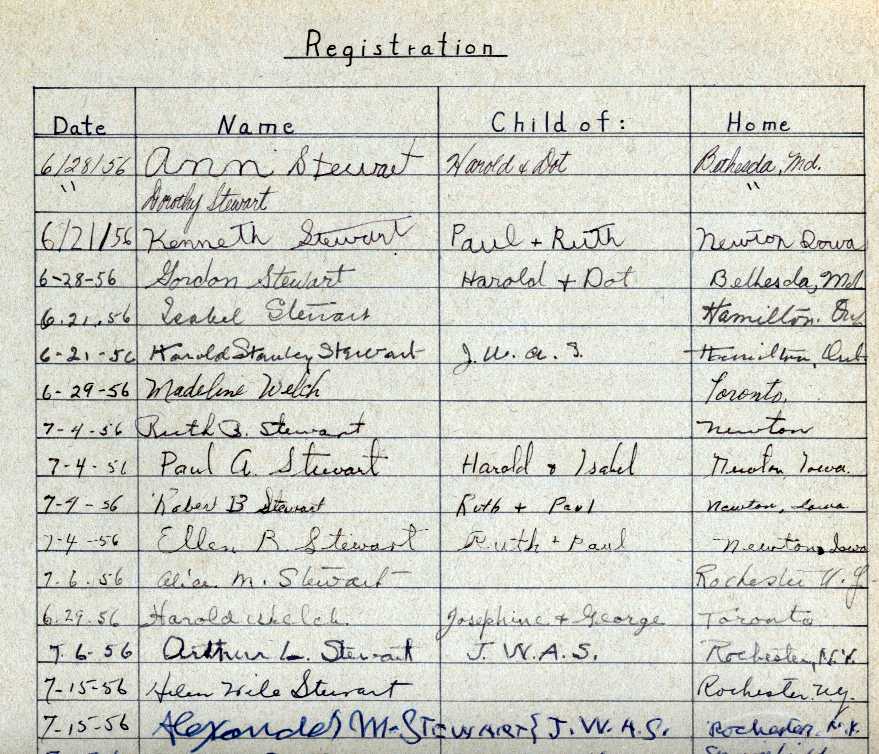 Registration
Date Name Child of: Home
6/28/56 Ann Stewart Harold & Dot Bethesda, Md.
" Dorothy Stewart "
6/21/56 Kenneth Stewart Paul + Ruth Newton Iowa
6-28-56 Gordon Stewart Harold + Dot Bethesda, Md
6.21.56 Isabel Stewart Hamilton.
6-21-56 Harold Stanley Stewart J.W.A.S. Hamilton, Ont
6-29-56 Madeline Welch Toronto,
7-4-56 Ruth B. Stewart Newton
7-4-56 Paul A. Stewart Harold & Isabel Newton Iowa.
7-4-56 Robert B Stewart Ruth + Paul Newton, Iowa
7-4-56 Ellen R. Stewart Ruth + Paul Newton, Iowa
7.6.56 Alice M. Stewart Rochester N.Y.
6.29.56 Harold Welch. Josephine & George Toronto
7.6-56 Arthur L. Stewart J.W.A.S. Rochester, N.Y.
7-15-56 Helen Wile Stewart Rochester. N.Y.
7-15-56 Alexander M. STEWART J.W.A.S. Rochester. N.Y.